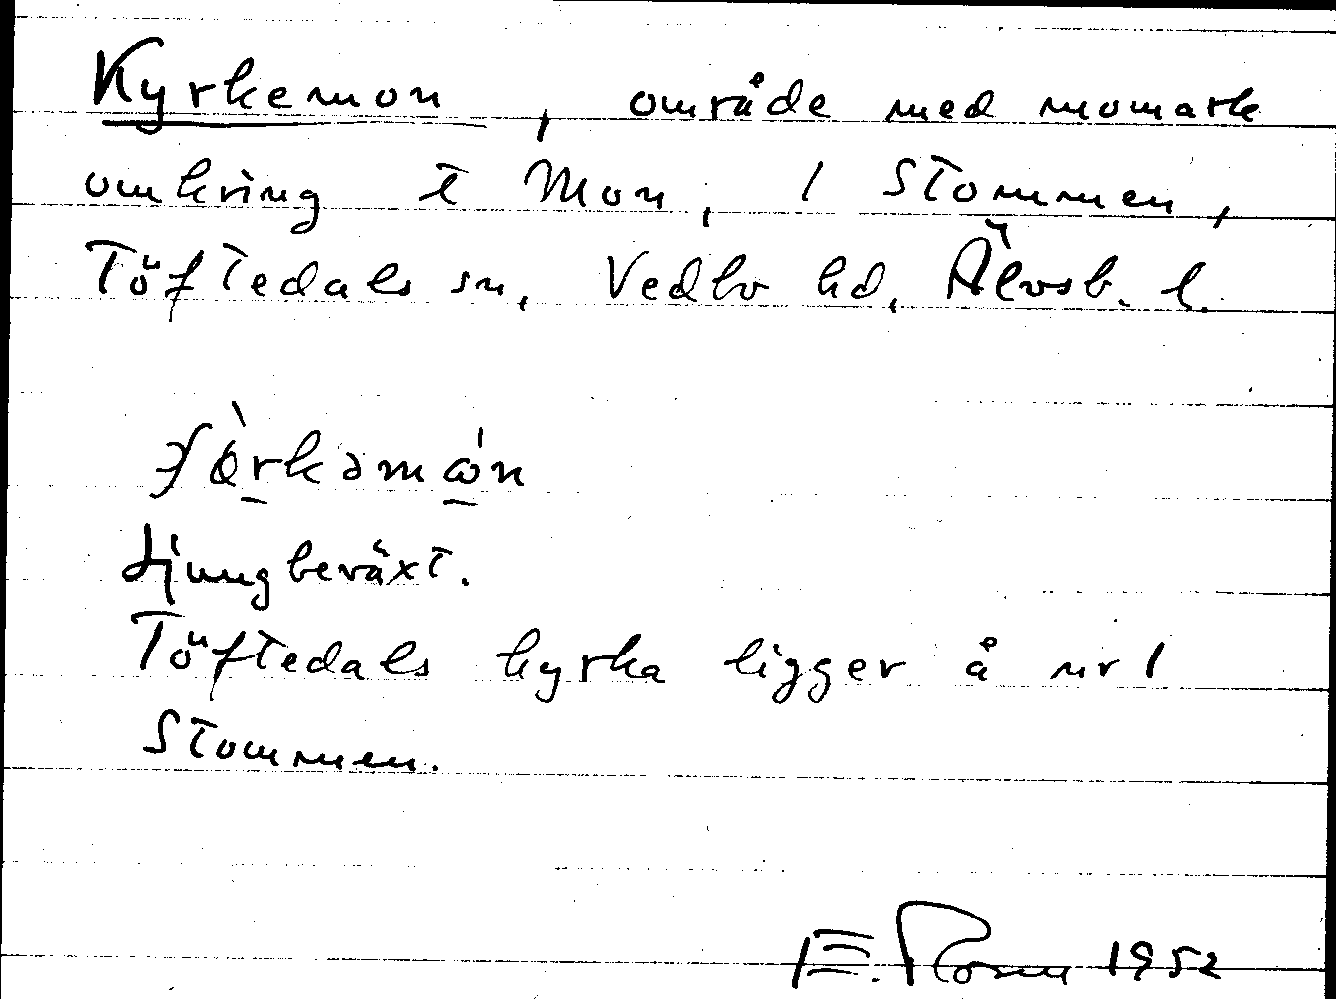 Kyrkemon, område med momark
omkring t Mon, 1 Stommen,
Töftedals sn, Vedbo hd, Älvsb. l.
Ljungbeväxt.
Töftedals kyrka ligger å nr 1
Stommen.
E. 1952